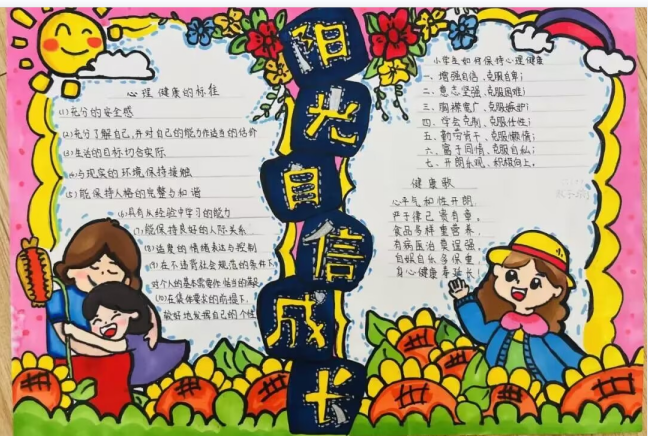 阳光自信成长
心理健康的标准
(1)充分的安全感
(2)充分了解自己,并对自己的能力作适当的估价
(3)生活的目标切合实际
(4)与现实的环境保持接触
(5)能保持人格的完整与和谐
(6)具有从经验中学习的能力
(7)能保持良好的人际关系
(8)适度的情绪表达与控制
(9)在不违背社会规范的条件下,
对个人的基本需要作恰当的满足
(10)在集体要求的前提下,
较好地发挥自己的个性
小学生如何保持心理健康
一、增强自信、克服自卑;
二、意志坚强、克服困难;
三、胸襟宽广、克服嫉妒;
四、学会克制、克服任性;
五、勤劳肯干、克服懒惰;
六、富于同情、克服自私;
七、开朗乐观、积极向上。
健康歌
心平气和性开朗,
严于律己贵有章。
食品多样重营养,
有病医治莫逞强。
自娱自乐多保重,
身心健康寿延长!